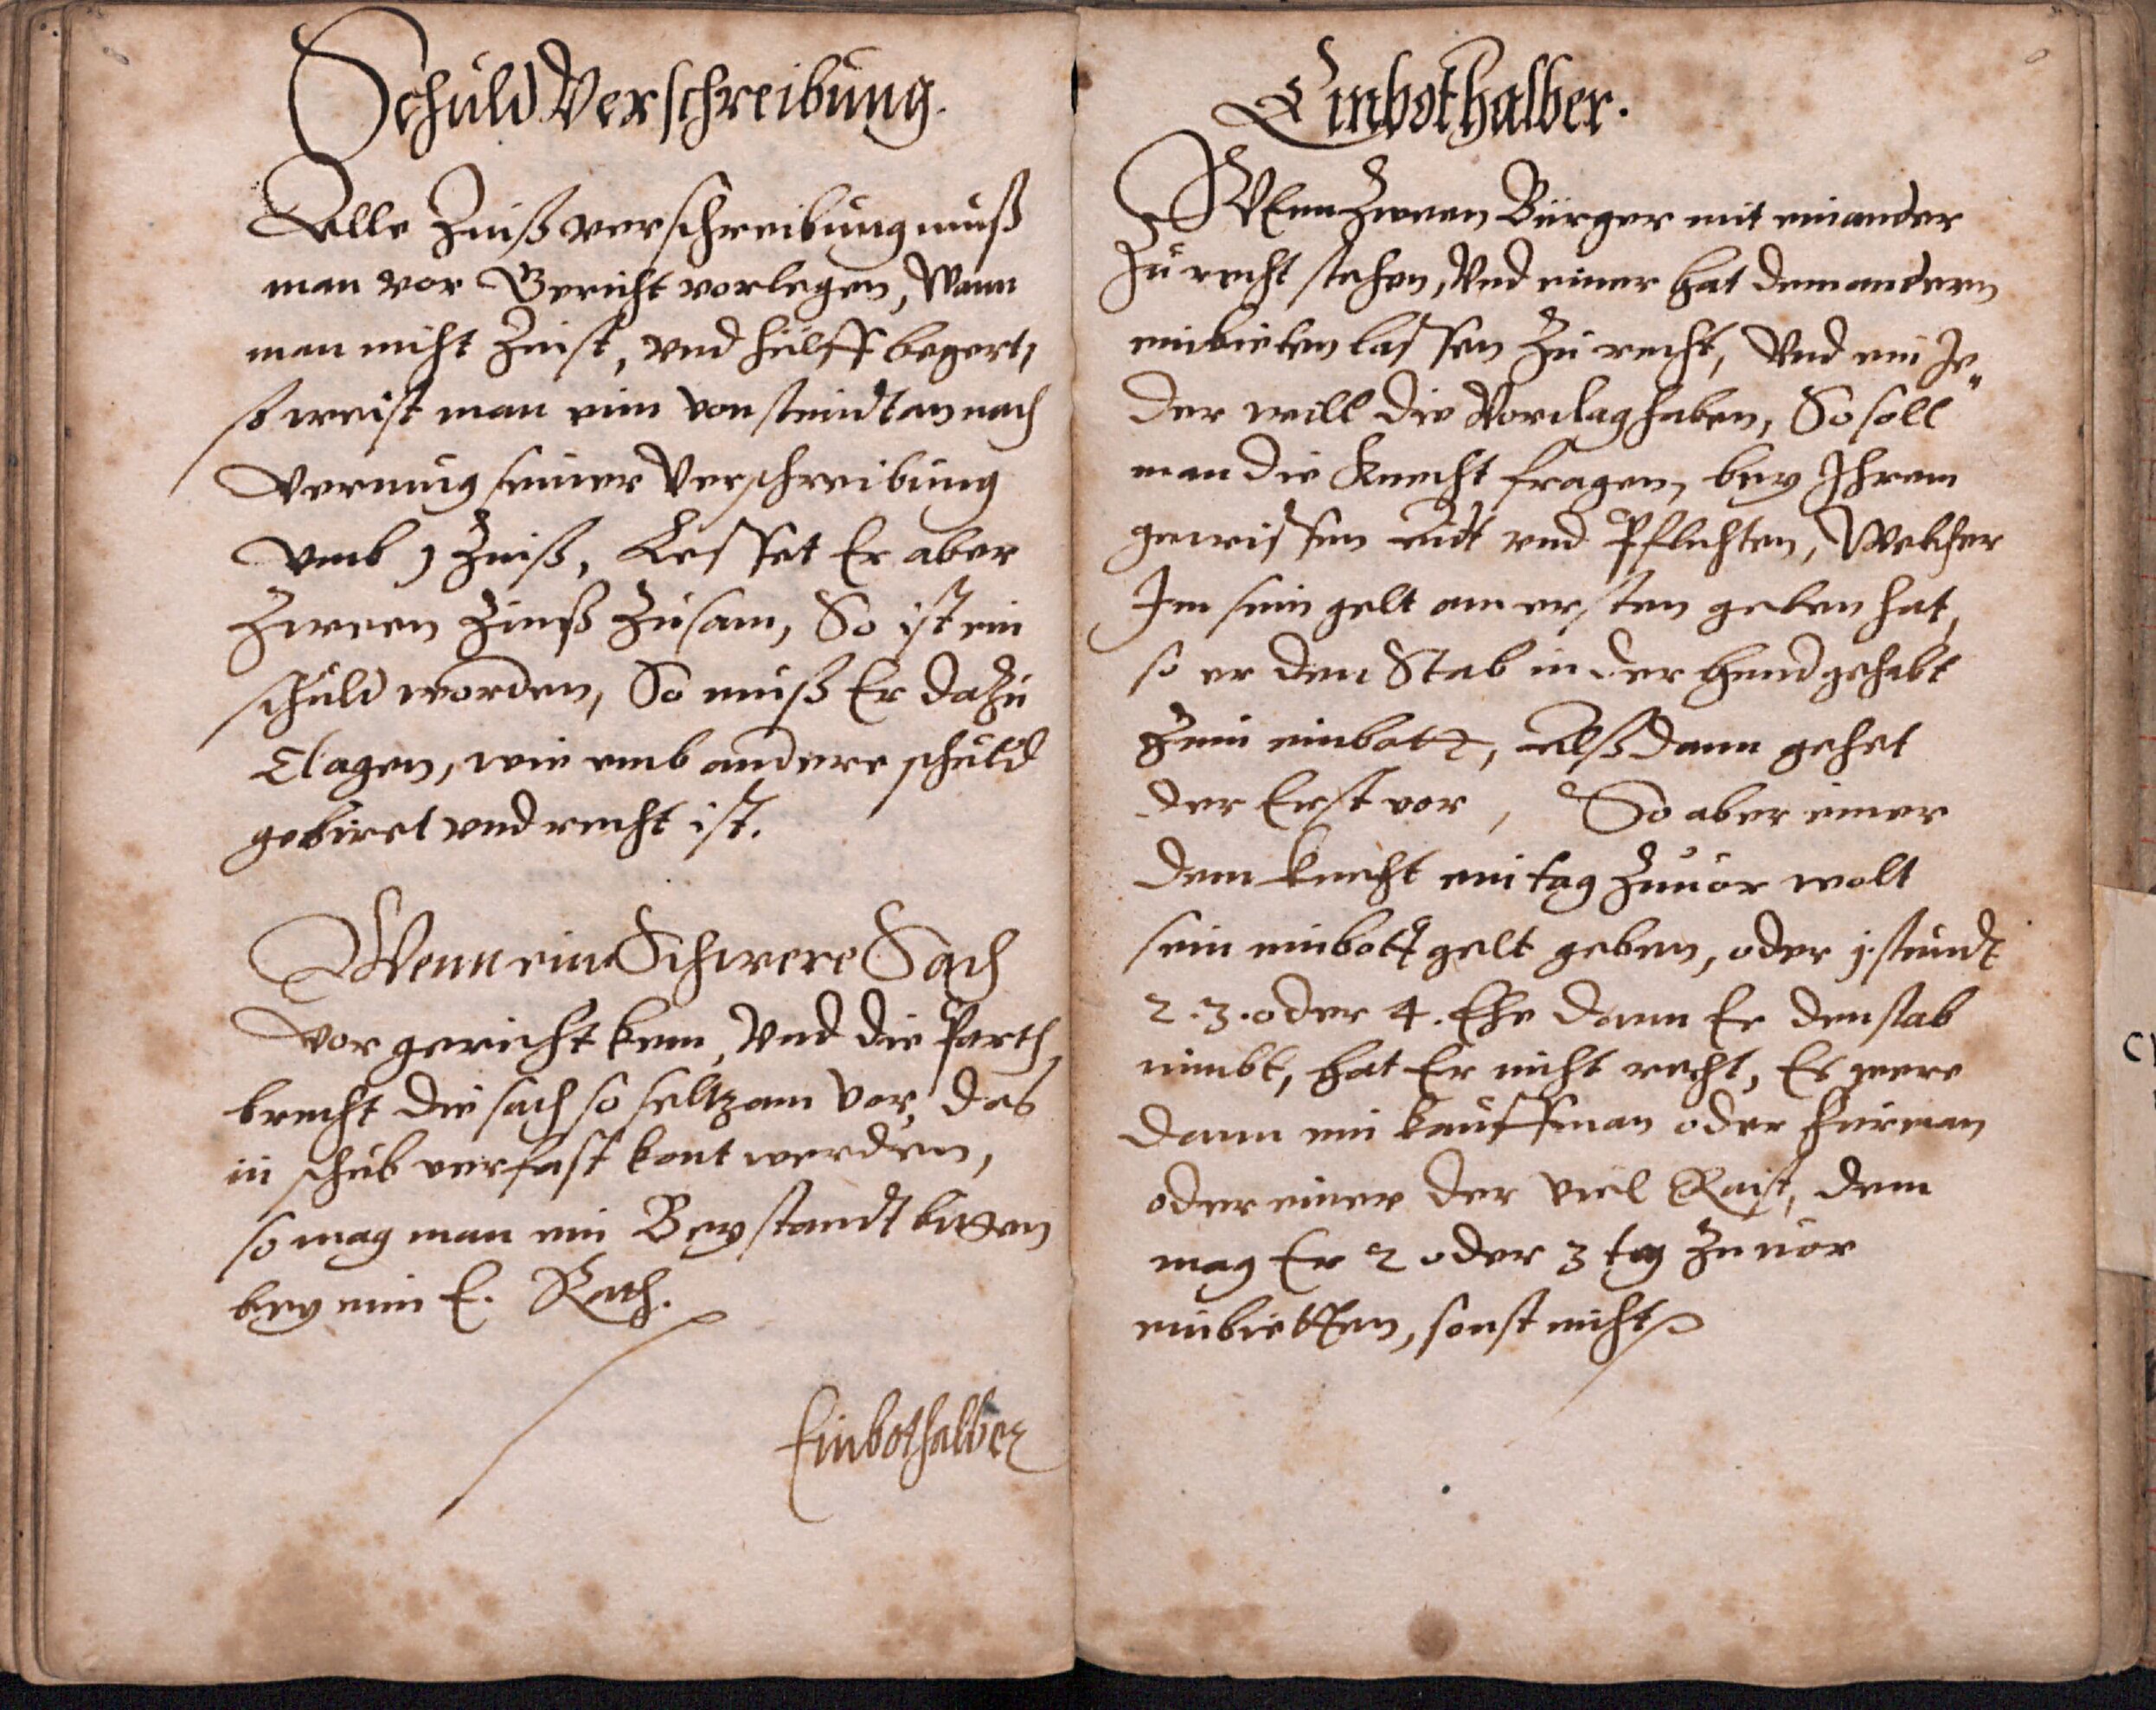 Schuld Verschreibung.
Alle Zinß verschreibung muß
man vor Gericht vorlegen, Wann
man nicht Zinst, vnd hülff begert,
so weist man ein von stundt an nach
vermug seiner Verschreibung
vmb 1 Zinß, Lesset Er aber
Zween Zinß Zusam, So ist ein
schuld worden, So muß Er dazu
Clagen, wie vmb andere schuld
gebiret vnd recht ist.
Wenn ein Schwere Sach
vor gericht kem, Vnd die Parth,
brecht die sach so seltzam vor, das
in schub verfast kont werden,
so mag man ein Beystandt bitten
bey eim E. Rath.
Einbothalber
Einbothalber.
WEnn Zween Bürger mit einander
Zu recht stehen, Vnd einer hat dem andern
einbieten lassen Zu recht, Vnd ein Je„
der will die Vorclag haben, So soll
man die Knecht fragen, bey Ihrem
gewissen eidt vnd Pflichten, Welcher
Im sein gelt am ersten geben hat,
so er den Stab in der Hand gehabt
Zum einbott, Alß dann gehet
der Erst vor, So aber einer
dem knecht ein tag Zuuor wolt
sein einbott gelt geben, oder 1. stundt
2. 3. oder 4. Ehe dann Er den stab
nimbt, hat Er nicht recht, Es were
dann ein kauffman oder Furman
oder einer der viel Raist, dem
mag Er 2 oder 3 tag Zuuor
einbietten, sonst nicht